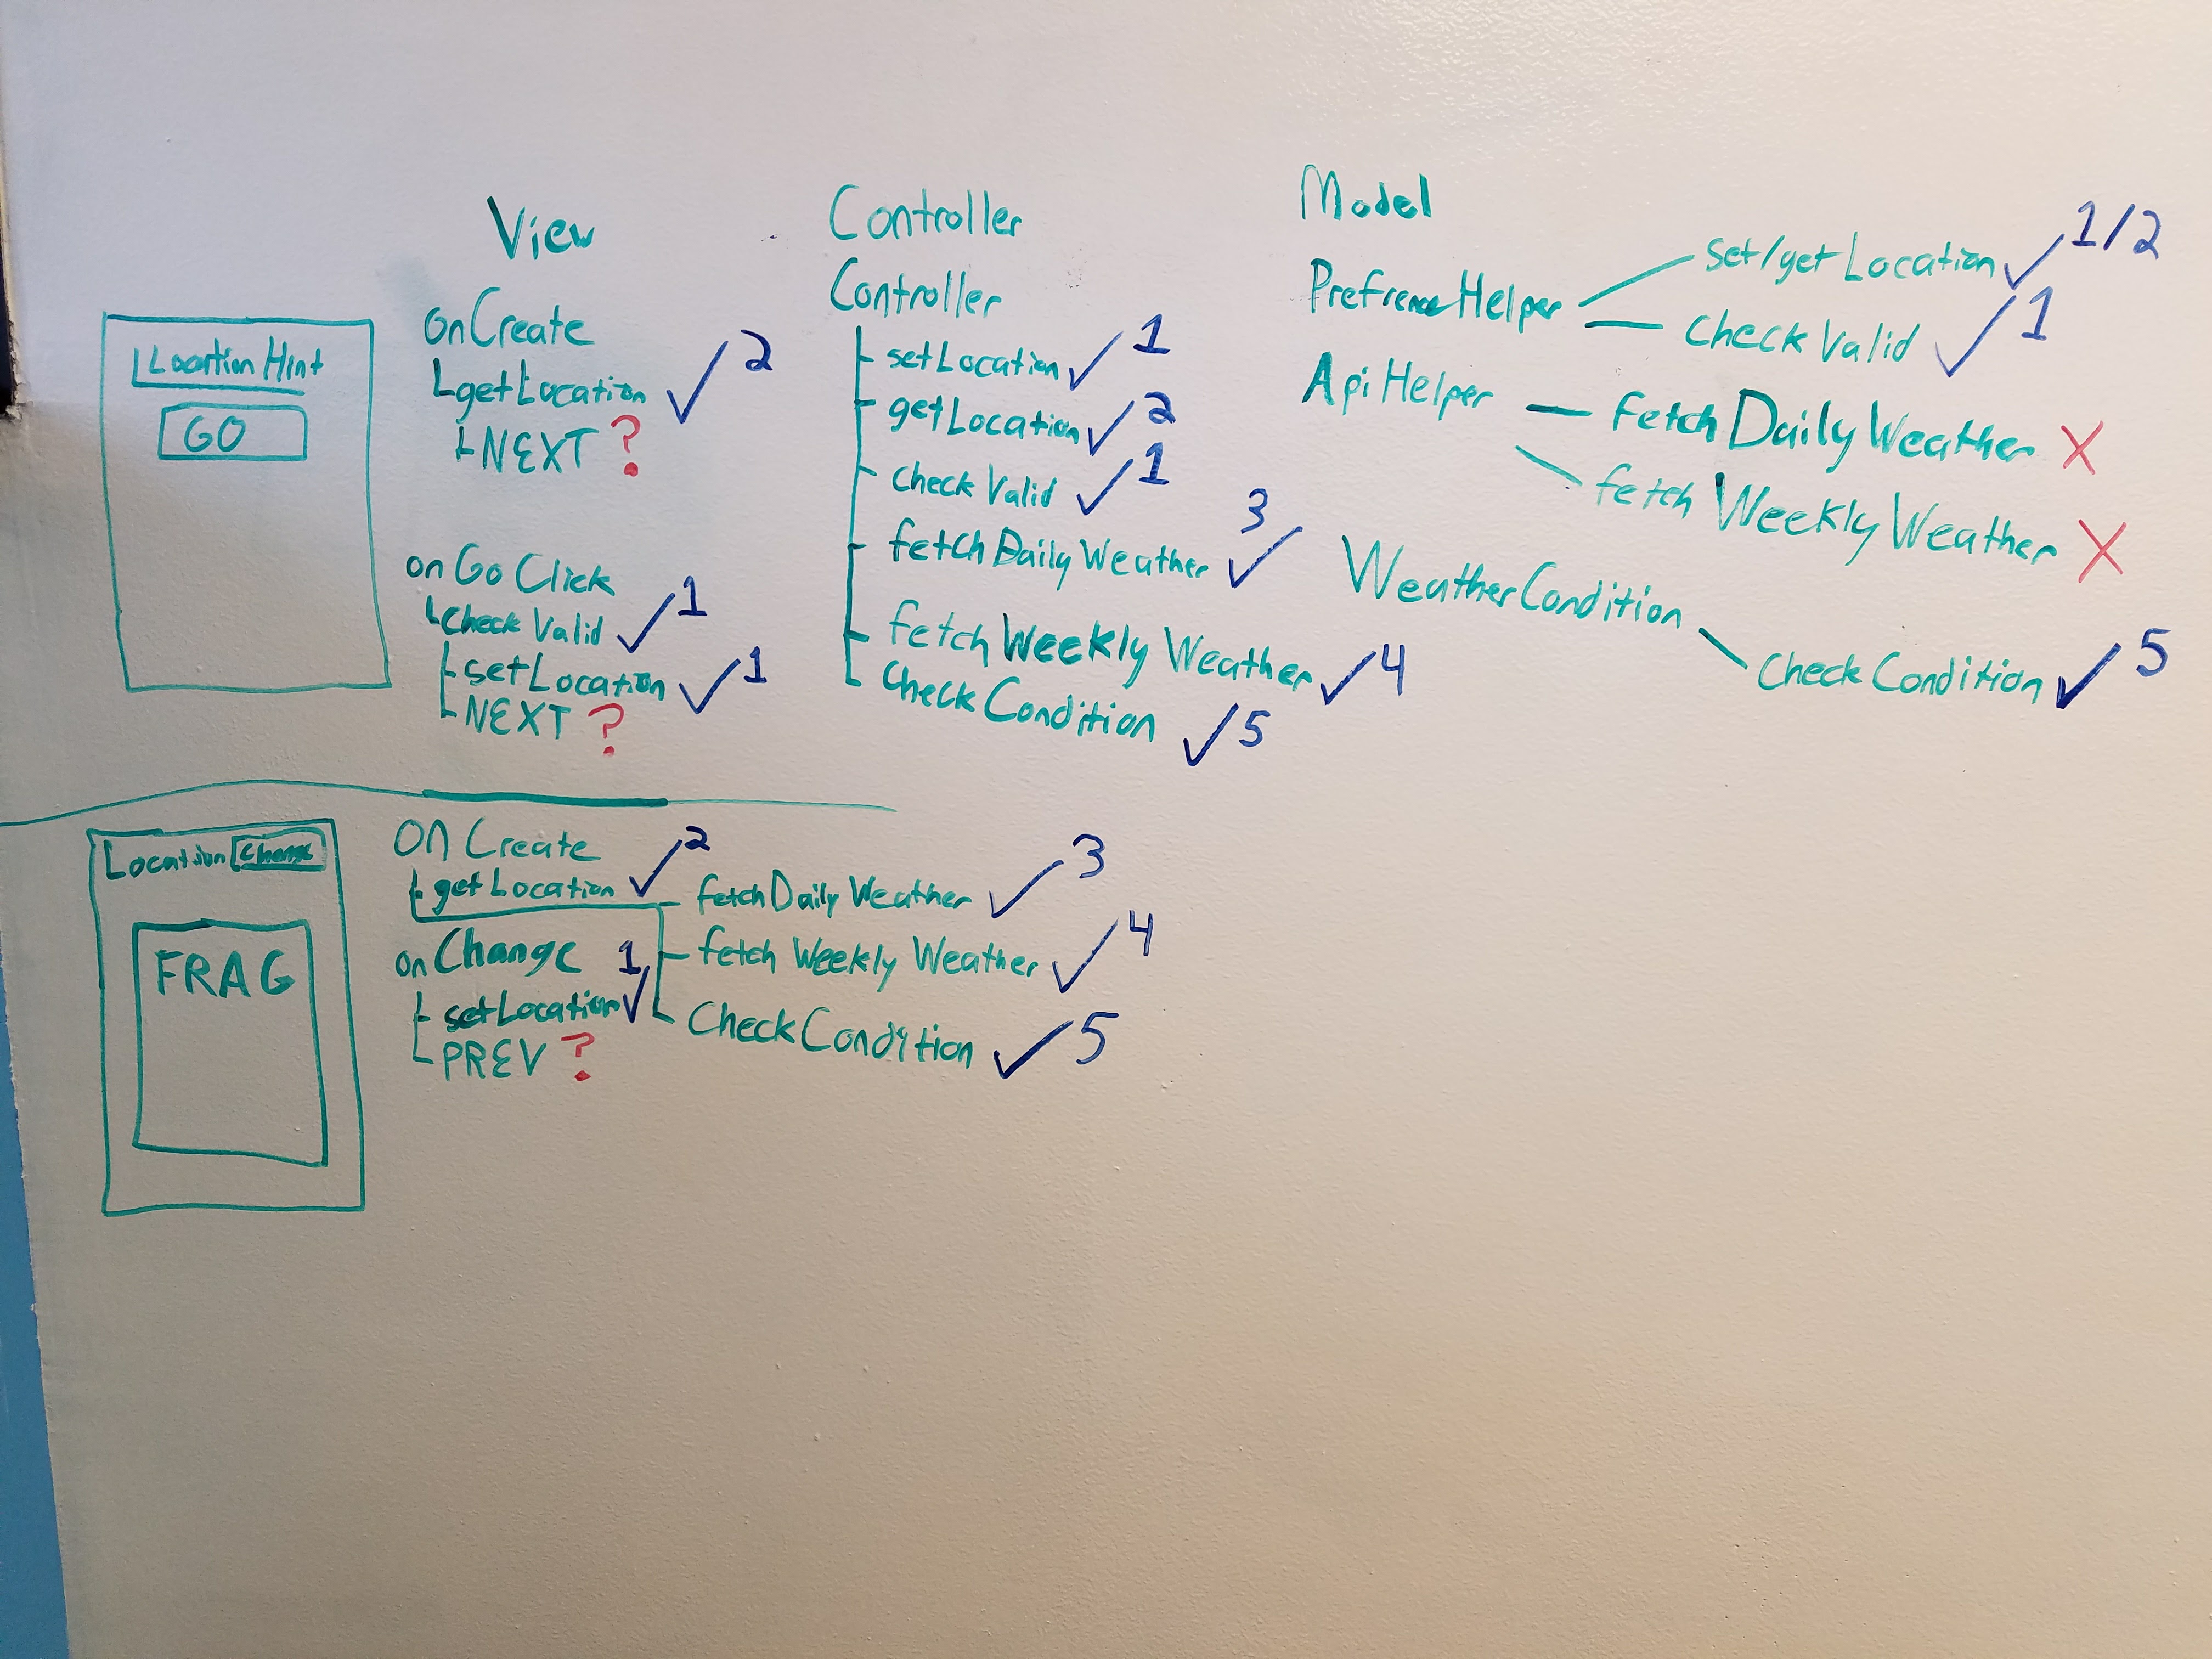 View
Location Hint
GO
onCreate
getLocation ✓ 2
NEXT ?
on Go Click
Check Valid ✓ 1
setLocation ✓ 1
NEXT ?
Controller
Controller
setLocation ✓ 1
getLocation ✓ 2
Check Valid ✓ 1
fetch Daily Weather ✓ 3
fetch Weekly Weather ✓ 4
Check Condition ✓ 5
Model
PrefrenceHelper
set/get Location ✓ 1/2
Check Valid ✓ 1
Api Helper
Fetch Daily Weather X
fetch Weekly Weather X
WeatherCondition
Check Condition ✓ 5
Location Change
FRAG
ON Create
get Location ✓ 2
fetch Daily Weather ✓ 3
fetch Weekly Weather ✓ 4
Check Condition ✓ 5
on Change
setLocation ✓ 1
PREV ?